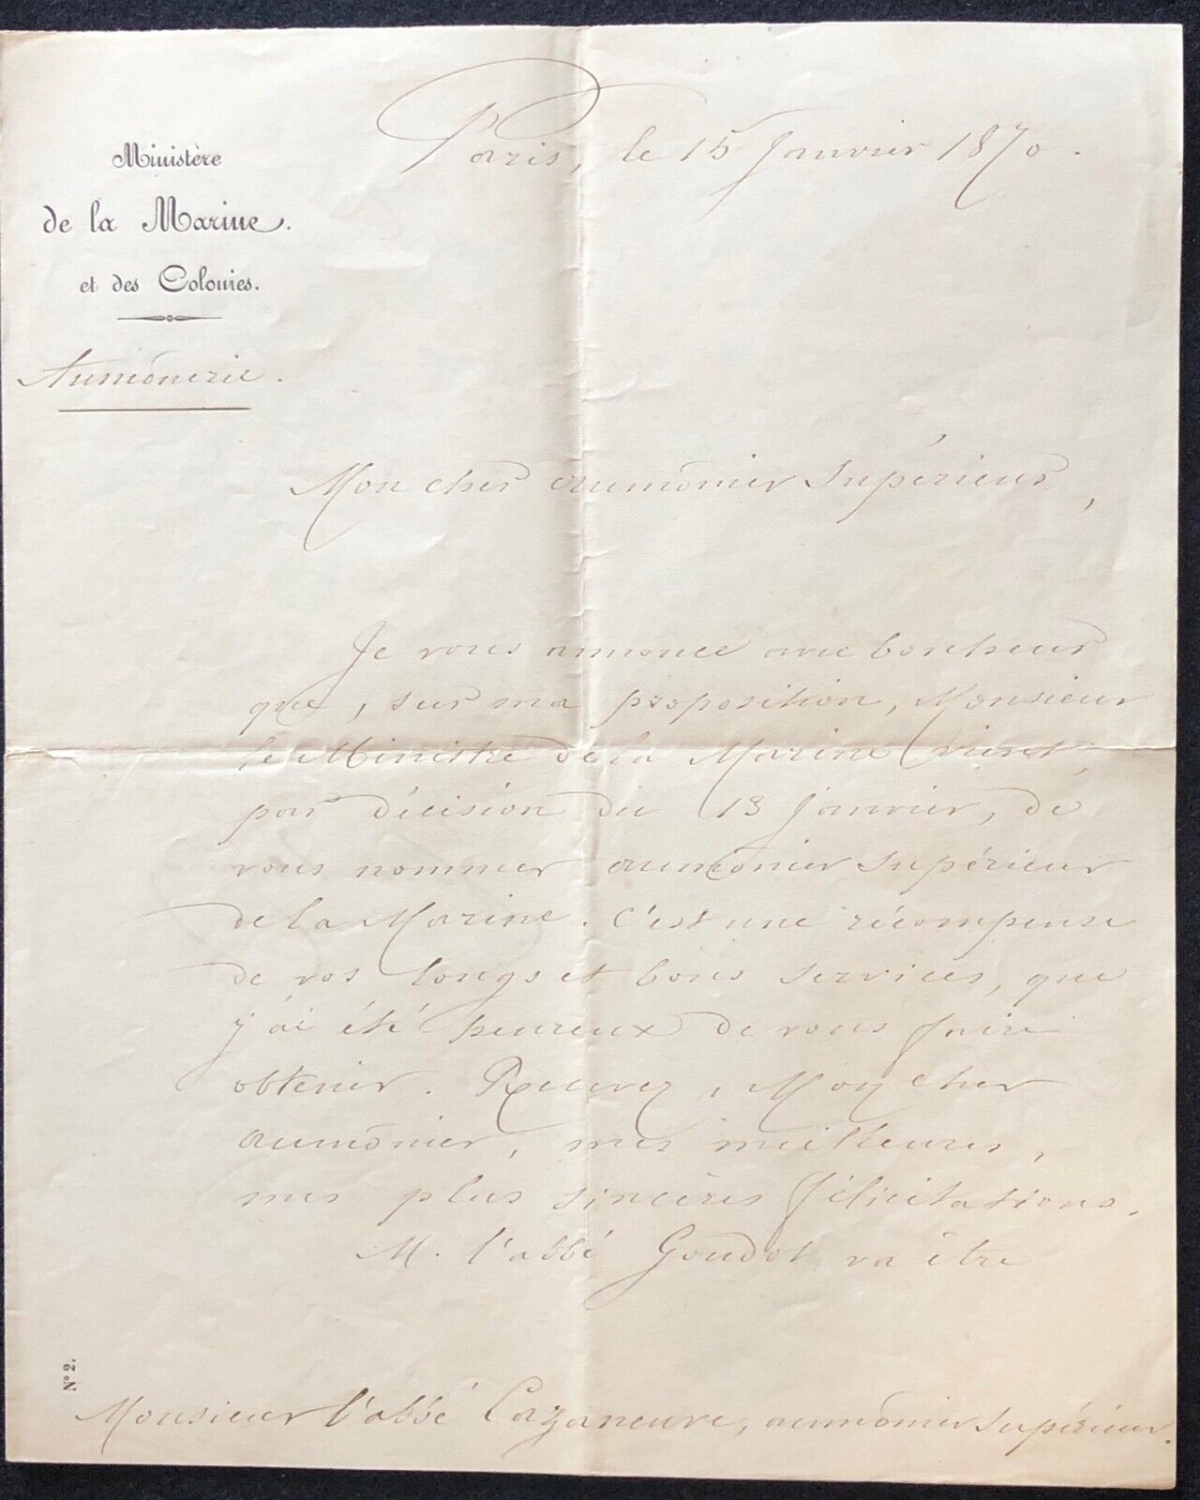 Paris, le 15 Janvier 1870.
Ministère
de la Marine.
et des Colonies.
Aumônerie.
Mon cher aumônier Supérieur,
Je vous annonce avec bonheur
que, sur ma proposition, Monsieur
le Ministre de la Marine vient,
par décision du 13 janvier, de
vous nommer aumônier supérieur
de la Marine. C'est une récompense
de vos longs et bons services, que
j'ai été heureux de vous faire
obtenir. Recevez, Mon cher
aumônier, mes meilleures,
mes plus sincères félicitations.
M. l'abbé Goudot va être
N° 2.
Monsieur l'abbé Cazaneuve, aumônier supérieur.